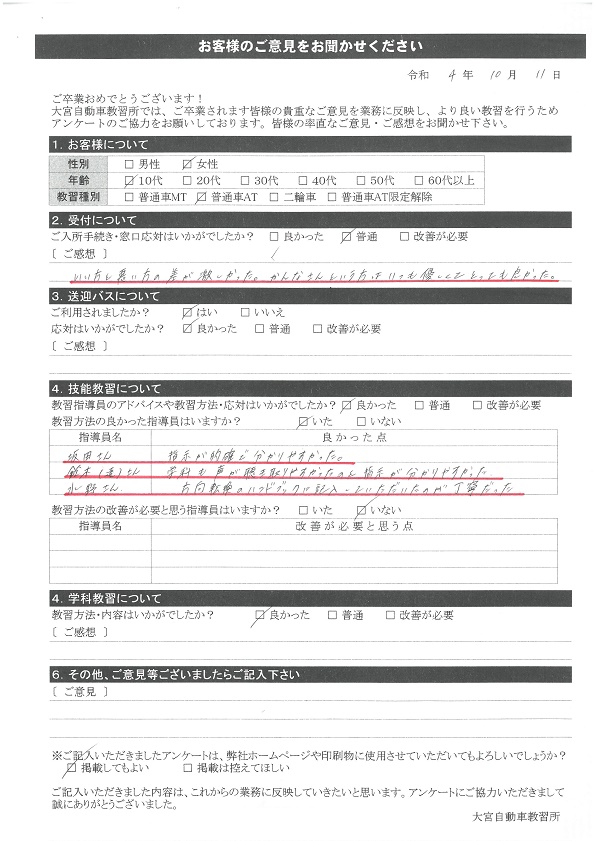 お客様のご意見をお聞かせください
令和 4 年 10 月 11 日
ご卒業おめでとうございます！
大宮自動車教習所では、ご卒業されます皆様の貴重なご意見を業務に反映し、より良い教習を行うため
アンケートのご協力をお願いしております。皆様の率直なご意見・ご感想をお聞かせ下さい。
1. お客様について
性別 □ 男性 ☑ 女性
年齢 ☑ 10代 □ 20代 □ 30代 □ 40代 □ 50代 □ 60代以上
教習種別 □ 普通車MT ☑ 普通車AT □ 二輪車 □ 普通車AT限定解除
2. 受付について
ご入所手続き・窓口応対はいかがでしたか？ □ 良かった ☑ 普通 □ 改善が必要
[ ご感想 ]
いい方と悪い方の差が激しかった。かんなさんという方はいつも優しくてとっても良かった。
3. 送迎バスについて
ご利用されましたか？ ☑ はい □ いいえ
応対はいかがでしたか？ ☑ 良かった □ 普通 □ 改善が必要
[ ご感想 ]
4. 技能教習について
教習指導員のアドバイスや教習方法・応対はいかがでしたか？ ☑ 良かった □ 普通 □ 改善が必要
教習方法の良かった指導員はいますか？ ☑ いた □ いない
指導員名 良かった点
坂田さん 指示が的確で分かりやすかった。
鈴木さん 学科も声が聴き取りやすかったのと指示が分かりやすかった
水野さん 方向転車のハンドブックに記入していただいたのが丁寧だった
教習方法の改善が必要と思う指導員はいますか？ □ いた ☑ いない
指導員名 改善が必要と思う点
4. 学科教習について
教習方法・内容はいかがでしたか？ ☑ 良かった □ 普通 □ 改善が必要
[ ご感想 ]
6. その他、ご意見等ございましたらご記入下さい
[ ご意見 ]
※ご記入いただきましたアンケートは、弊社ホームページや印刷物に使用させていただいてもよろしいでしょうか？
☑ 掲載してもよい □ 掲載は控えてほしい
ご記入いただきました内容は、これからの業務に反映していきたいと思います。アンケートにご協力いただきまして
誠にありがとうございました。
大宮自動車教習所